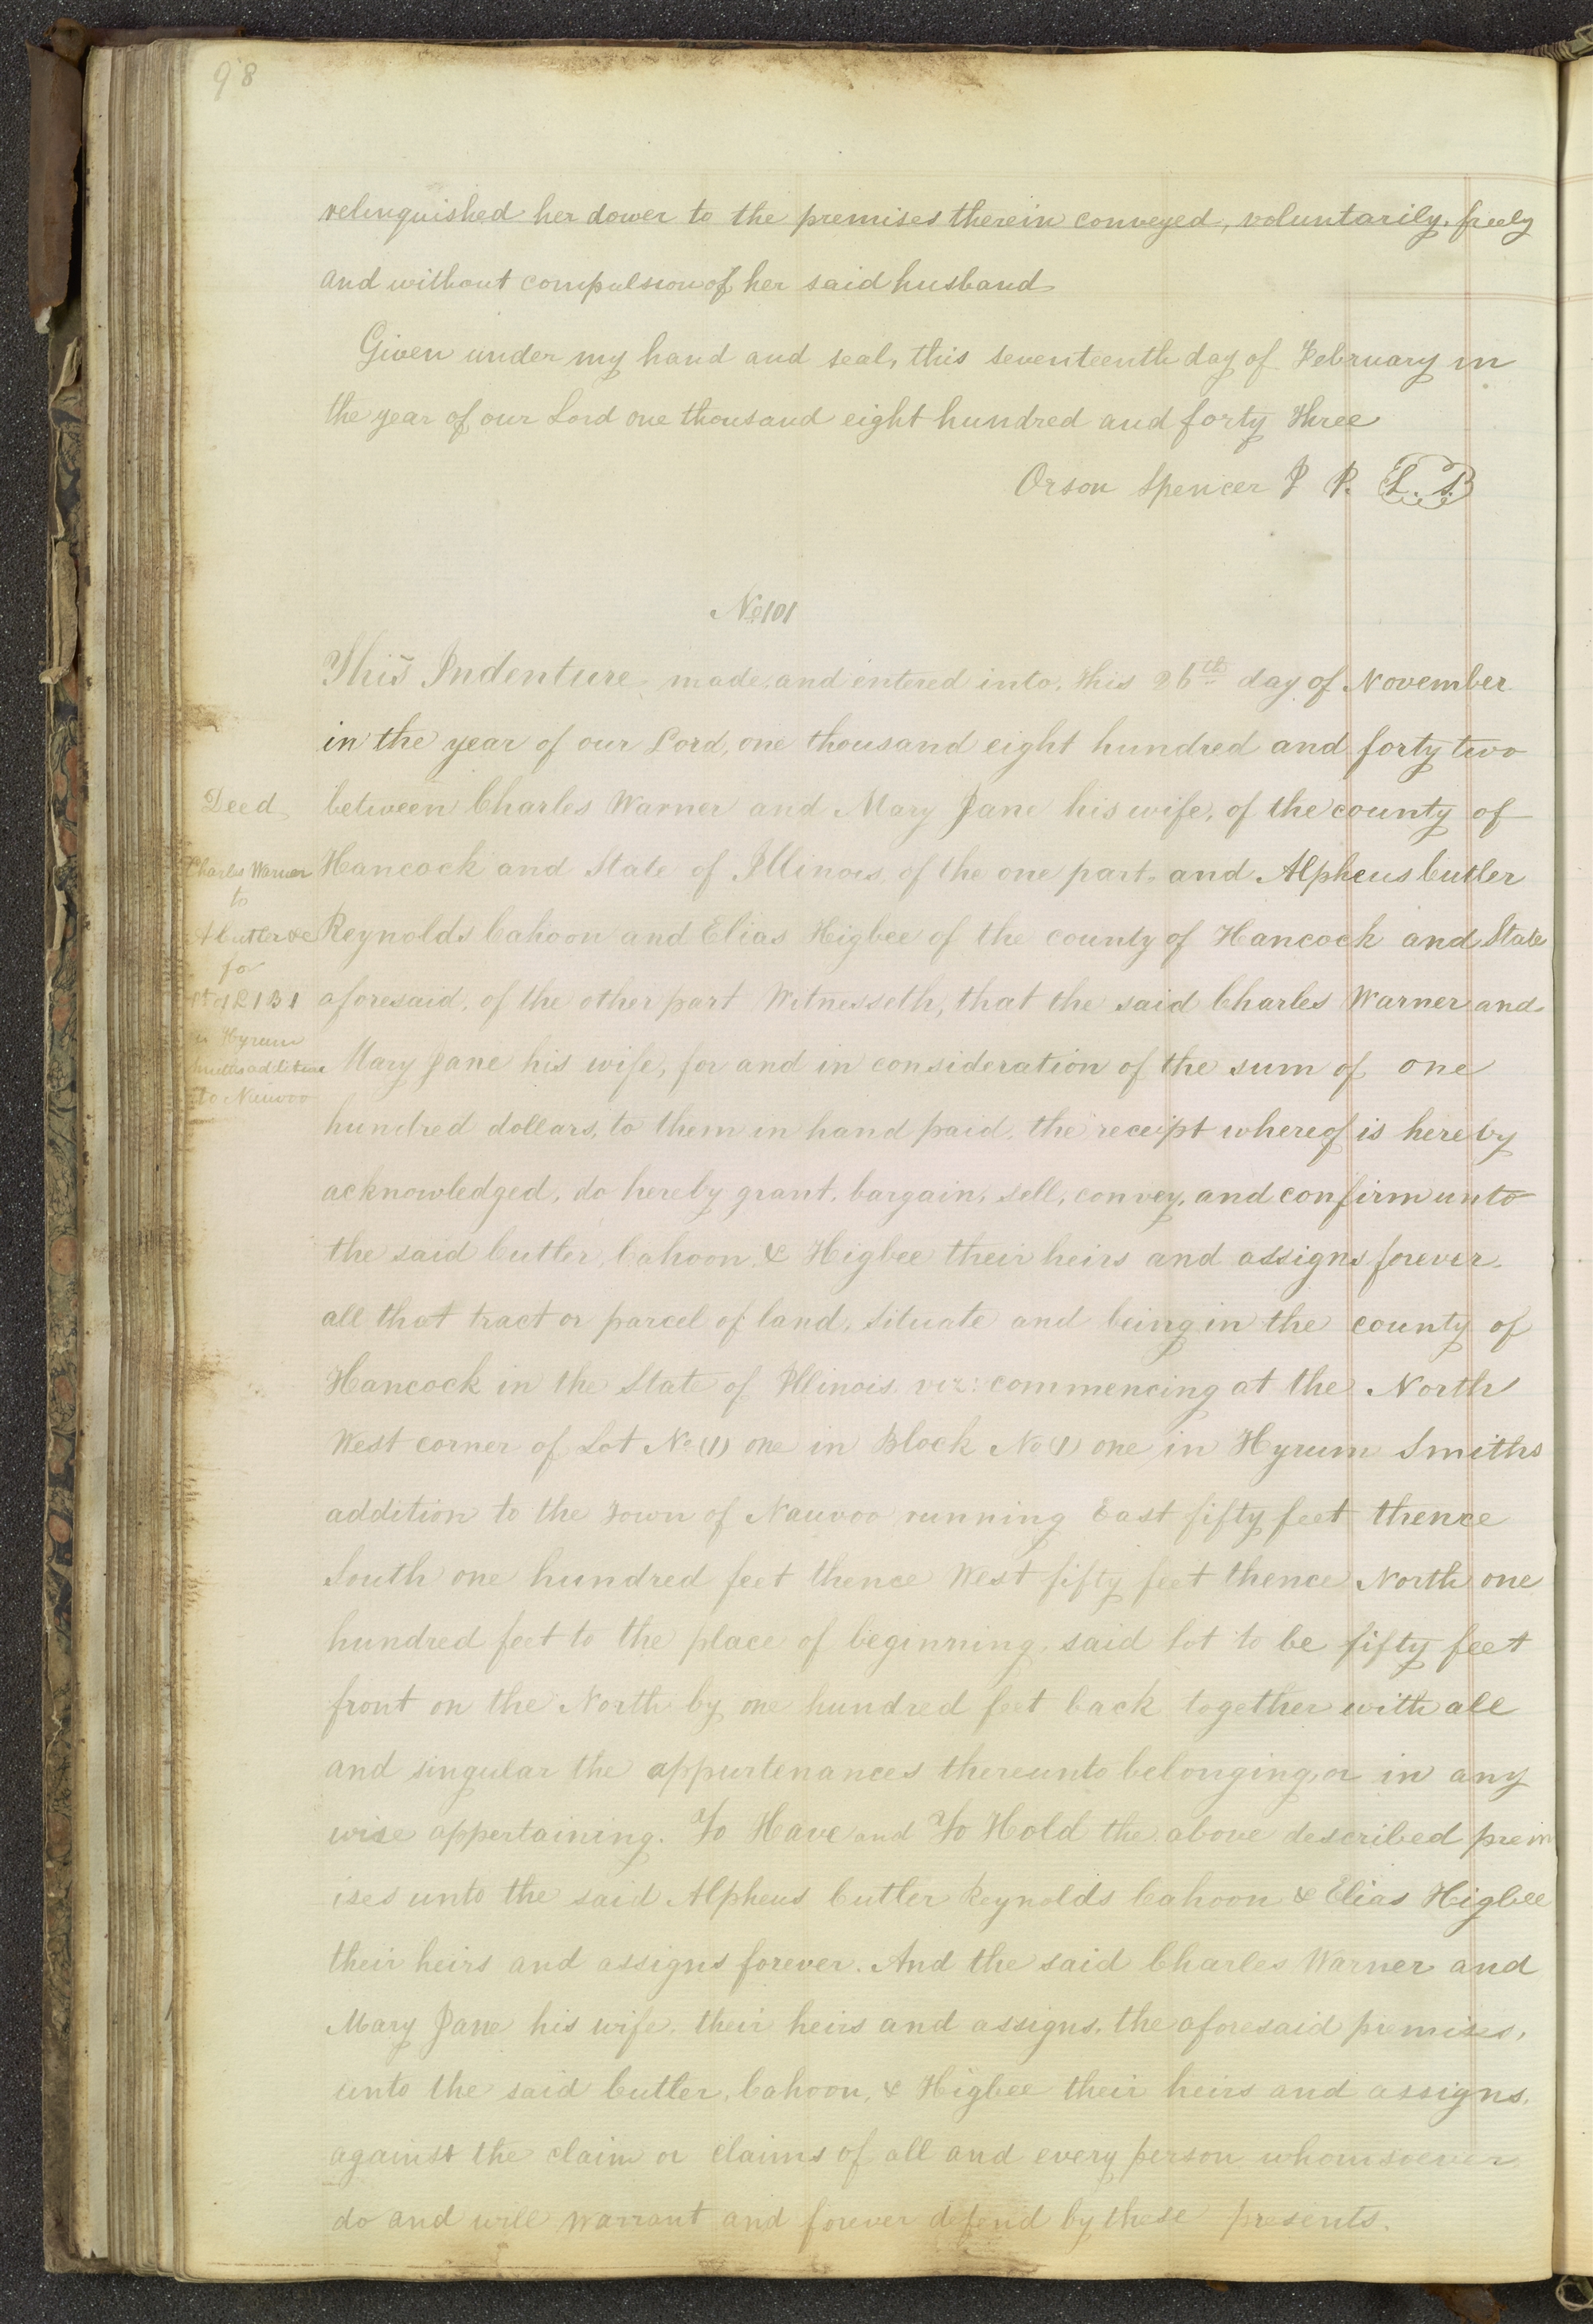 98
relinquished her dower to the premises therein conveyed, voluntarily, freely
and without compulsion of her said husband
Given under my hand and seal, this seventeenth day of February in
the year of our Lord one thousand eight hundred and forty three
Orson Spencer J P. L.S
No 101
This Indenture, made, and entered into, this 26th day of November
in the year of our Lord, one thousand eight hundred and forty two
Deed
between Charles Warner and Mary Jane his wife, of the county of
Charles Warner
Hancock and State of Illinois, of the one part, and Alpheus Cutler
to
A Cutler &c
Reynolds Cahoon and Elias Higbee of the county of Hancock and State
for
Pt of L 1 B 1
aforesaid, of the other part Witnesseth, that the said Charles Warner and
in Hyrum
Smiths addition
Mary Jane his wife, for and in consideration of the sum of one
to Nauvoo
hundred dollars, to them in hand paid, the receipt whereof is hereby
acknowledged, do hereby grant, bargain, sell, convey, and confirm unto
the said Cutler, Cahoon, & Higbee their heirs and assigns forever.
all that tract or parcel of land, situate and being in the county of
Hancock in the State of Illinois, viz: commencing at the North
West corner of Lot No (1) one in Block No (1) one in Hyrum Smiths
addition to the Town of Nauvoo running East fifty feet thence
South one hundred feet thence West fifty feet thence North one
hundred feet to the place of beginning, said lot to be fifty feet
front on the North by one hundred feet back together with all
and singular the appurtenances thereunto belonging, or in any
wise appertaining. To Have and To Hold the above described prem
ises unto the said Alpheus Cutler Reynolds Cahoon & Elias Higbee
their heirs and assigns forever. And the said Charles Warner and
Mary Jane his wife, their heirs and assigns, the aforesaid premises,
unto the said Cutler, Cahoon, & Higbee their heirs and assigns,
against the claim or claims of all and every person whomsoever
do and will warrant and forever defend by these presents.